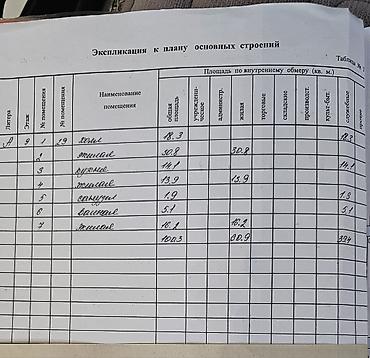 Экспликация к плану основных строений
Таблица №
Литера Этаж № помещения № помещения Наименование помещения Площадь по внутреннему обмеру (кв. м.)
общая площадь учрежденическое администр. жилая торговые складские производст. культ-быт. служебные прочие
А 9 1 29 холл 18.3 18.3
2 жилая 30.8 30.8
3 кухня 14.1 14.1
4 жилая 13.9 13.9
5 санузел 1.9
6 ванная 5.1 5.1
7 жилая 16.2 16.2
100.3 60.9 394